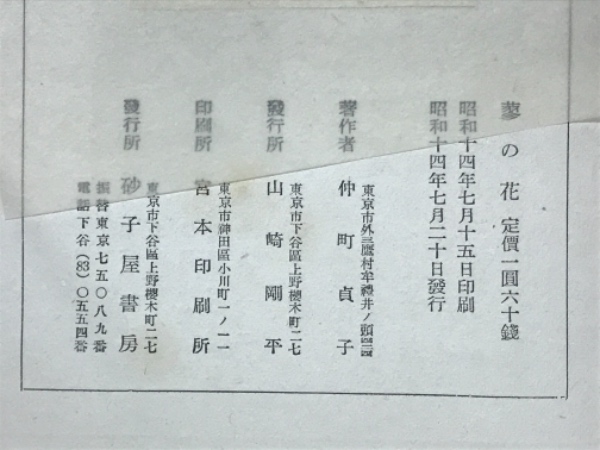 蓼の花 定價一圓六十錢
昭和十四年七月十五日印刷
昭和十四年七月二十日發行
東京市外三鷹村牟禮井ノ頭
著作者 仲町貞子
東京市下谷區上野櫻木町二七
發行所 山崎剛平
東京市神田區小川町一ノ一一
印刷所 宮本印刷所
東京市下谷區上野櫻木町二七
發行所 砂子屋書房
振替東京七五〇八九番
電話下谷(83)〇五五四番